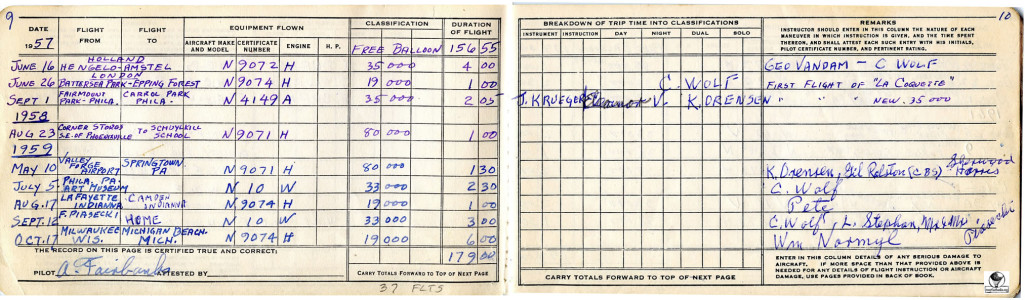 9
DATE
1957
FLIGHT FROM
FLIGHT TO
EQUIPMENT FLOWN
AIRCRAFT MAKE AND MODEL
CERTIFICATE NUMBER
ENGINE
H. P.
CLASSIFICATION
FREE BALLOON
DURATION OF FLIGHT
156 55
HOLLAND
JUNE 16 HENGELO-AMSTEL N 9072 H 35 000 4 00
LONDON
JUNE 26 BATTERSEA PARK - EPPING FOREST N 9074 H 19 000 1 00
SEPT 1 FAIRMOUNT PARK-PHILA. CARROL PARK PHILA. N 4149 A 35 000 2 05
1958
AUG 23 CORNER STORES S.E. OF PHOENIXVILLE TO SCHUYLKILL SCHOOL N 9071 H 80 000 1 00
1959
MAY 10 VALLEY FORGE AIRPORT SPRINGTOWN PA N 9071 H 80 000 1 30
JULY 5 PHILA. PA. ART MUSEUM N 10 W 33 000 2 30
AUG. 17 LAFAYETTE INDIANNA CAMDEN INDIANNA N 9074 H 19 000 1 00
SEPT. 12 F. PIASECKI HOME N 10 W 33 000 3 00
OCT. 17 MILWAUKEE WIS. MICHIGAN BEACH. MICH. N 9074 H 19 000 6 00
THE RECORD ON THIS PAGE IS CERTIFIED TRUE AND CORRECT:
179 00
PILOT A. Fairbanks ATTESTED BY
CARRY TOTALS FORWARD TO TOP OF NEXT PAGE
37 FLTS
10
BREAKDOWN OF TRIP TIME INTO CLASSIFICATIONS
INSTRUMENT
INSTRUCTION
DAY
NIGHT
DUAL
SOLO
REMARKS
INSTRUCTOR SHOULD ENTER IN THIS COLUMN THE NATURE OF
EACH MANEUVER IN WHICH INSTRUCTION IS GIVEN, AND THE TIME SPENT
THEREON, AND SHALL ATTEST EACH SUCH ENTRY WITH HIS INITIALS,
PILOT CERTIFICATE NUMBER, AND PERTINENT RATING.
GEO VANDAM - C WOLF
C. WOLF FIRST FLIGHT OF "LA COQUETTE"
J. KRUEGER Eleanor V. K. DRENSEN " " " NEW. 35 000
K. Drensen, Gil Ralston (CBS) Sherwood Harris
C. Wolf
Pete
C. Wolf, L. Stephan, Mr & Mrs Piasecki
Wm Normyl
ENTER IN THIS COLUMN DETAILS OF ANY SERIOUS DAMAGE TO
AIRCRAFT. IF MORE SPACE THAN THAT PROVIDED ABOVE IS
NEEDED FOR ANY DETAILS OF FLIGHT INSTRUCTION OR AIRCRAFT
DAMAGE, USE PAGES PROVIDED IN BACK OF BOOK.
CARRY TOTALS FORWARD TO TOP OF NEXT PAGE